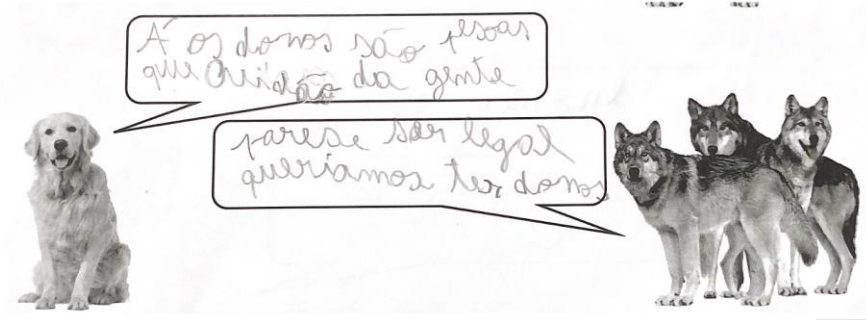 Á os donos são pesoas
que cuidão da gente
parese ser legal
queriamos ter donos